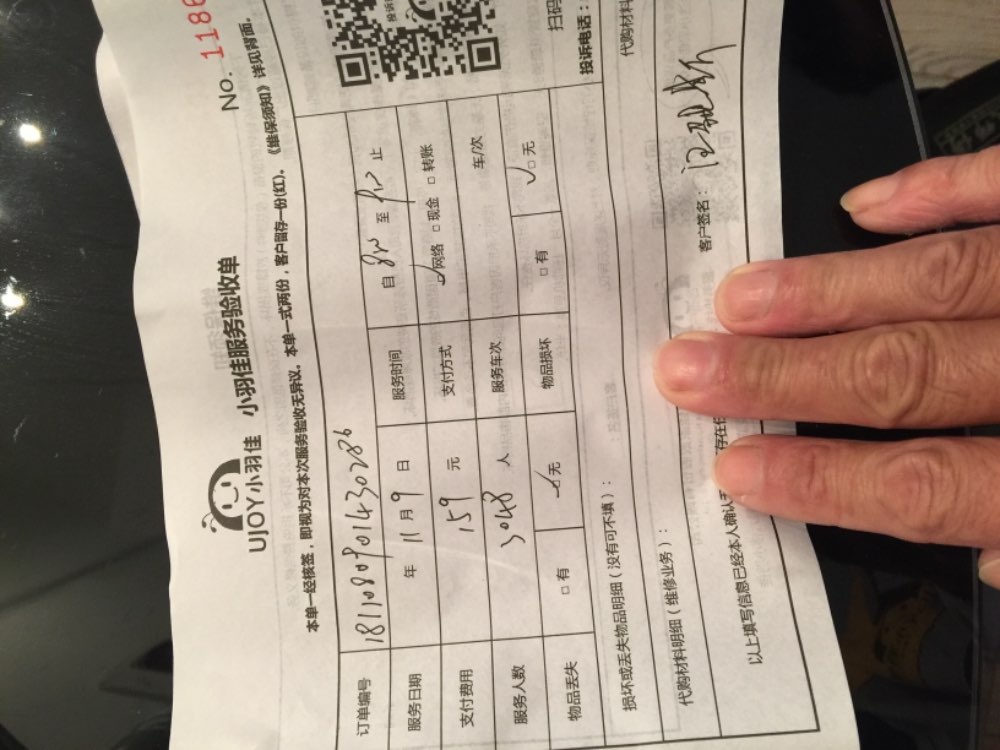 No. 1180
UJOY小羽佳 小羽佳服务验收单
本单一经核签，即视为对本次服务验收无异议。本单一式两份，客户留存一份(红)。《维保须知》详见背面。
投诉
扫码
投诉电话：
订单编号 1811080901430286
服务日期 年 11 月 9 日 服务时间 自 至 止
支付费用 159 元 支付方式 ☑网络 □现金 □转账
服务人数 3048 人 服务车次 车/次
物品丢失 □有 ☑无 物品损坏 □有 ☑无
损坏或丢失物品明细（没有可不填）：
代购材料明细（维修业务）： 代购材料
以上填写信息已经本人确认 存在任 客户签名：